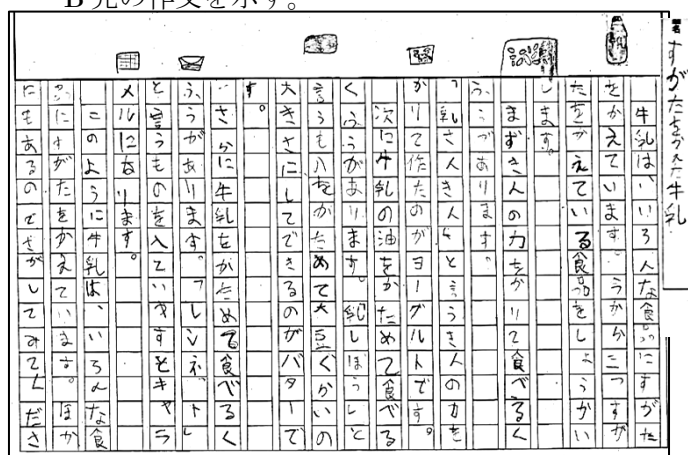 B児の作文を示す。
すがたをかえた牛乳
牛乳は、いろんな食品にすがた
をかえています。つすが
たをかえている食品をしょうかい
します。
まずきんの力をかりて食べるく
ふうがあります。
「乳さんきん」と言うきんの力を
かりて作たのがヨーグルトです。
次に牛乳の油をかためて食べる
くふうがあります。乳しぼうしと
言うものをかためて大豆ぐらいの
大きさにしてできるのがバターで
す。
さらに牛乳をかためて食べるく
ふうがあります。「レンネット」
と言うものを入ていやすとキャラ
メルになります。
このように牛乳は、いろんな食
品にすがたをかえています。ほか
にもあるのでさがしてみてくださ